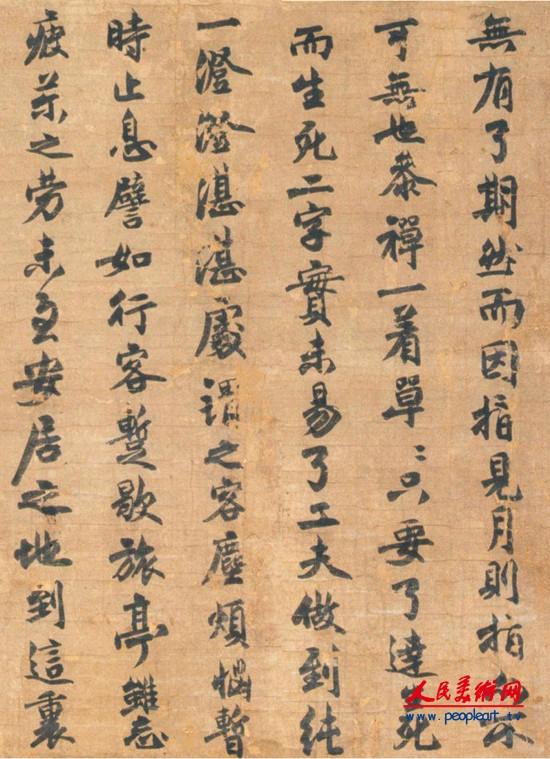 無有了期然而因指見月則指亦不
可無也叅禪一着單〻只要了達生死
而生死二字實未易了工夫做到純
一澄澄湛湛處謂之客塵煩惱暫
時止息譬如行客暫歇旅亭雖忘
疲苶之勞未至安居之地到這裏
人民美术网
www.peopleart.tv